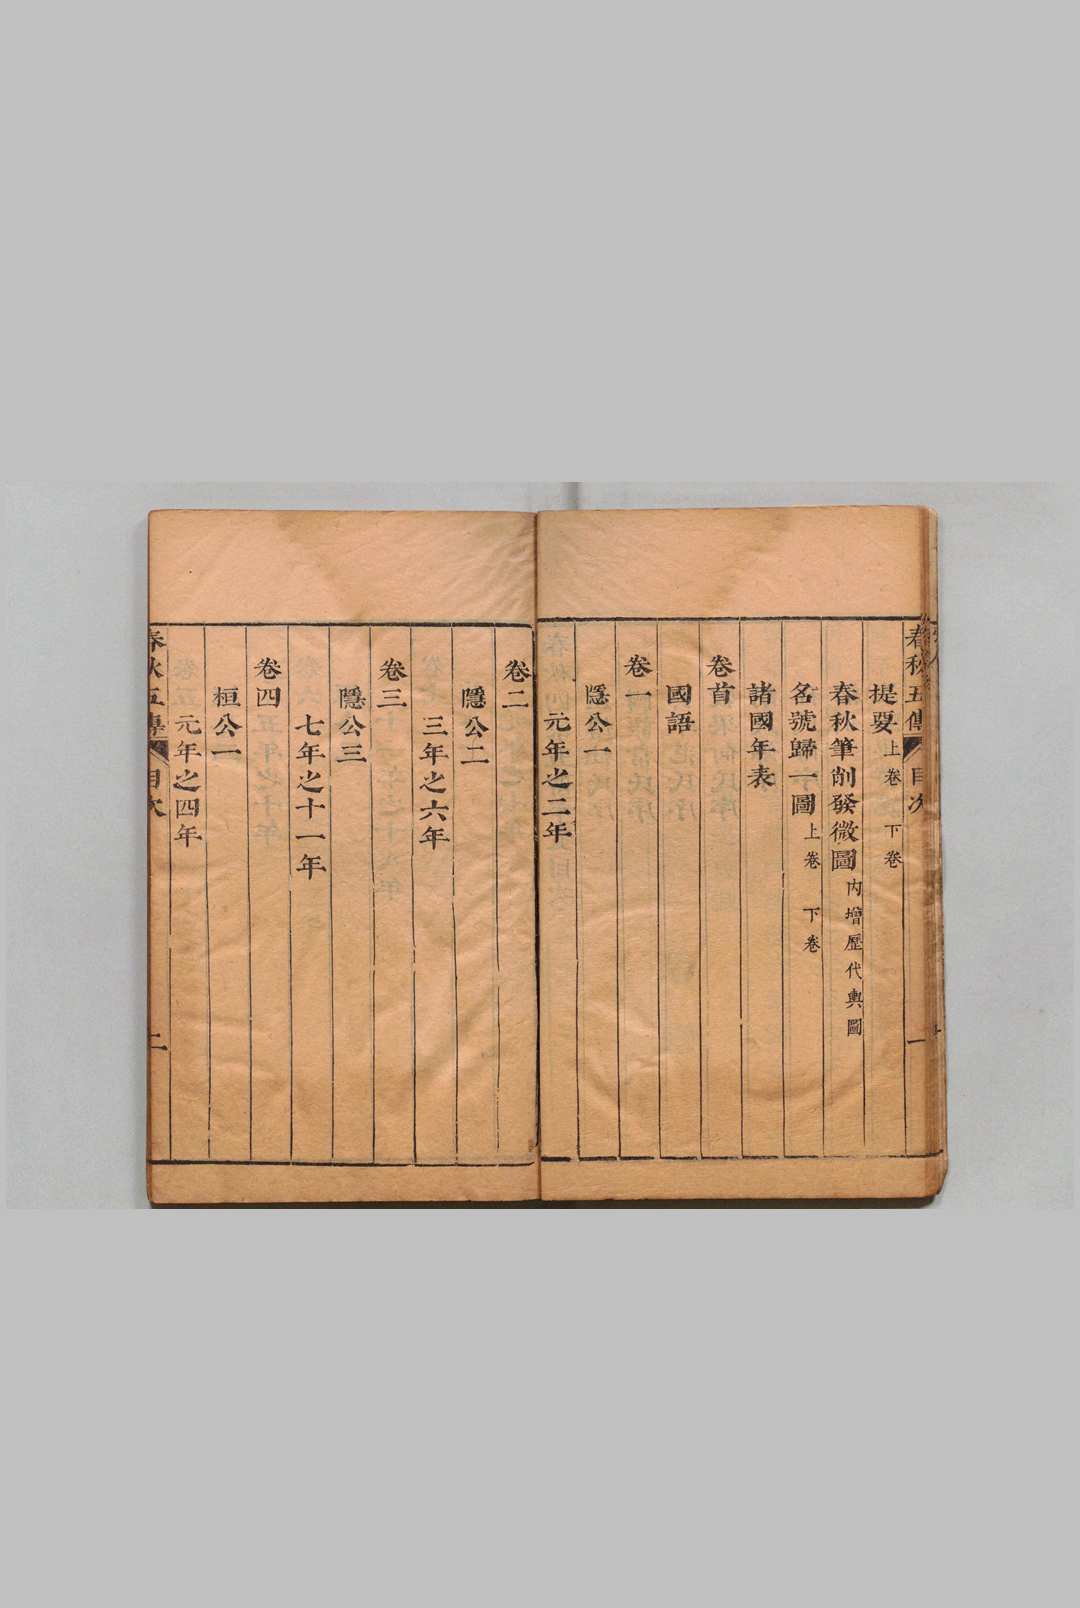 春秋五傳 目次 一
提要 上卷 下卷
春秋筆削發微圖 內增歷代輿圖
名號歸一圖 上卷 下卷
諸國年表
卷首
國語
卷一
隱公一
元年之二年
卷二
隱公二
三年之六年
卷三
隱公三
七年之十一年
卷四
桓公一
元年之四年
春秋五傳 目次 二